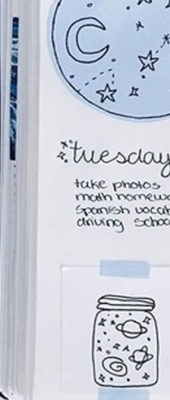 tuesday
take photos
math homew
spanish vocab
driving schoo